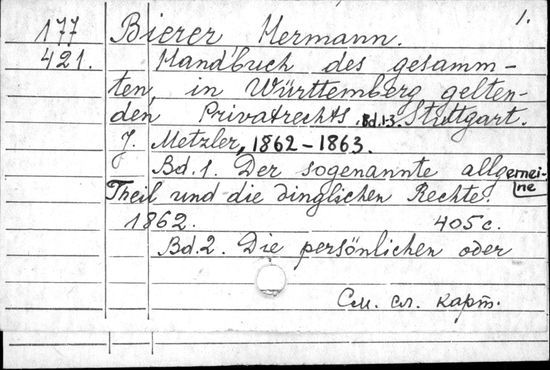 1.
177 Bierer Hermann.
421. Handbuch des gesamm-
ten, in Württemberg gelten-
den Privatrechts. Bd.1-3. Stuttgart.
J. Metzler, 1862-1863.
Bd. 1. Der sogenannte allgemei-
ne
Theil und die dinglichen Rechte.
1862. 405 c.
Bd. 2. Die persönlichen oder
См. сл. карт.